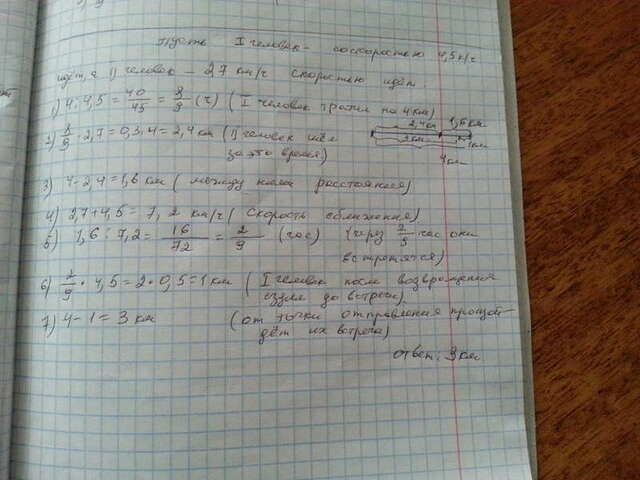 Пусть I человек - со скоростью 4,5 к/ч
идёт, а II человек - 2,7 км/ч скоростью идёт.
1) 4 : 4,5 = 40/45 = 8/9 (ч) (I человек прошел на 4 км)
2) 8/9 · 2,7 = 0,3 · 8 = 2,4 км (II человек шёл
за это время)
2,4 км 1,6 км
3 км 1 км
4 км
3) 4 - 2,4 = 1,6 км (между ними расстояние)
4) 2,7 + 4,5 = 7,2 км/ч (скорость сближения)
5) 1,6 : 7,2 = 16/72 = 2/9 (час) (через 2/9 час они
встретятся)
6) 2/9 · 4,5 = 2 · 0,5 = 1 км (I человек после возвращения
до встречи)
7) 4 - 1 = 3 км (от точки отправления
их встреча)
ответ: 3 км